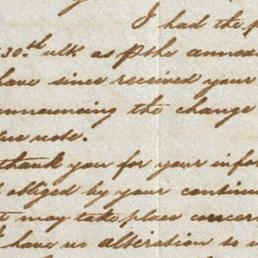 I had the p
30th ulto as p the annexe
have since received your
announcing the change
our note.
thank you for your infor
obliged by your continu
t may take place concer
have no alteration so